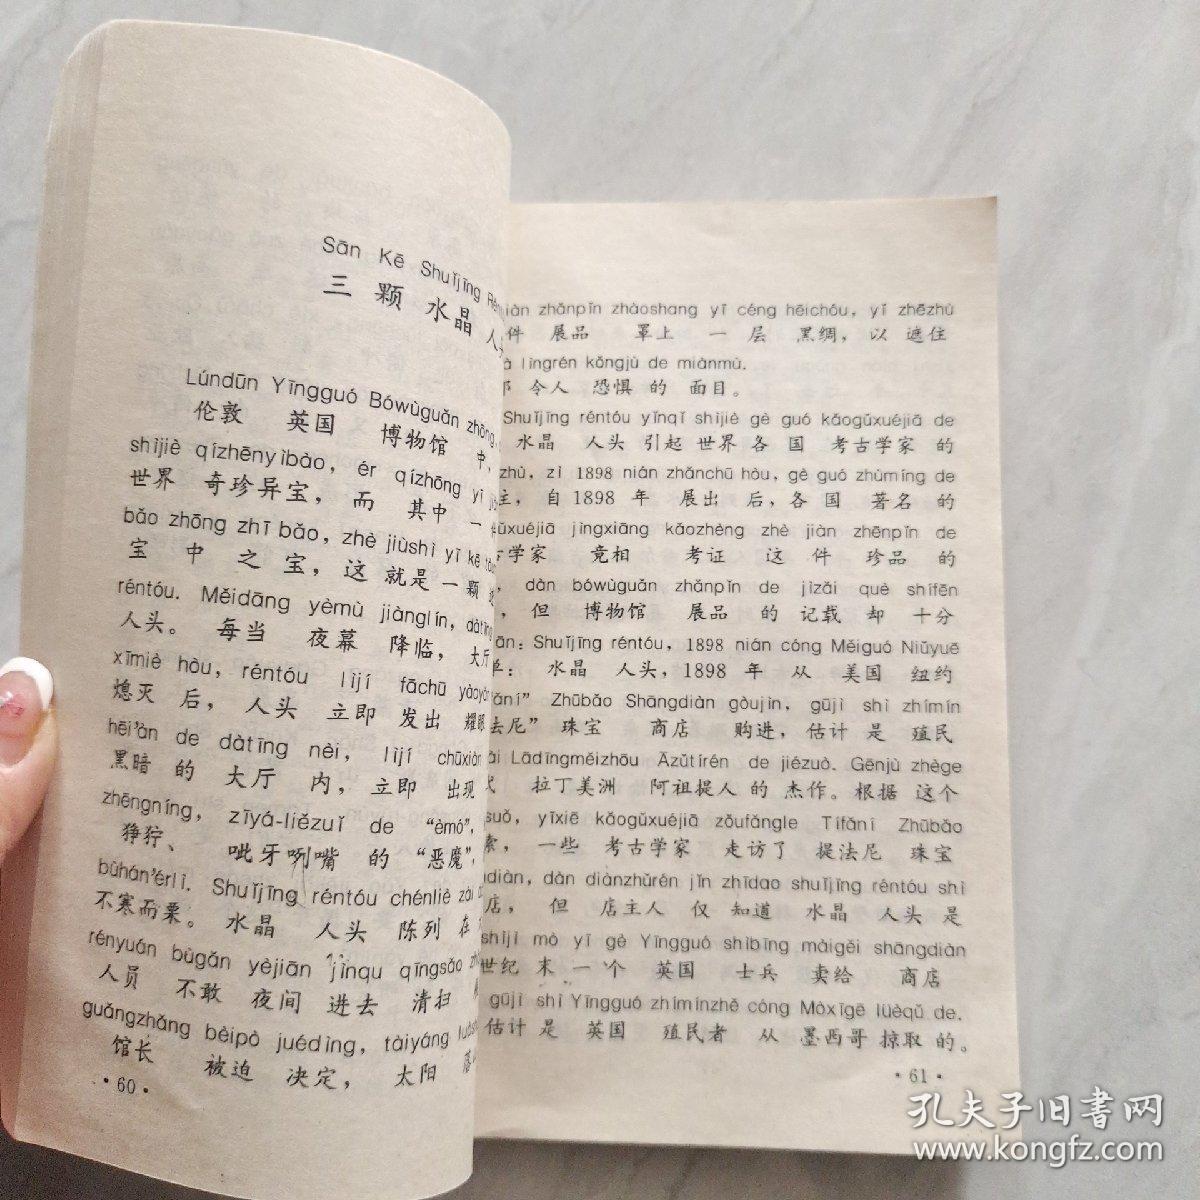 Sān Kē Shuǐjīng
三 颗 水晶 人
Lúndūn Yīngguó Bówùguǎn zhōng,
伦敦 英国 博物馆 中,
shìjiè qízhēnyìbǎo, ér qízhōng yī
世界 奇珍异宝, 而 其中 一
bǎo zhōng zhī bǎo, zhè jiùshì yī kē
宝 中 之 宝, 这 就是 一颗
réntóu. Měidāng yèmù jiànglín, dàtīng
人头。 每当 夜幕 降临, 大厅
xīmiè hòu, réntóu lìjí fāchū
熄灭 后, 人头 立即 发出 耀眼
hēi'àn de dàtīng nèi, lìjí chūxiàn
黑暗 的 大厅 内, 立即 出现
zhēngníng, zīyá-liězuǐ de “èmó”,
狰狞、 呲牙咧嘴 的 “恶魔”,
bùhán'érlì. Shuǐjīng réntóu chénliè zài
不寒而栗。 水晶 人头 陈列 在
rényuán bùgǎn yèjiān jìnqu qīngsǎo
人员 不敢 夜间 进去 清扫
guǎngzhǎng bèipò juédìng, tàiyáng
馆长 被迫 决定, 太阳
·60·
jiàn zhǎnpǐn zhàoshang yī céng hēichóu, yǐ zhēzhù
件 展品 罩上 一 层 黑绸, 以 遮住
lìngrén kǒngjù de miànmù.
令人 恐惧 的 面目。
Shuǐjīng réntóu yǐnqǐ shìjiè gè guó kǎogǔxuéjiā de
水晶 人头 引起 世界 各 国 考古学家 的
zhù, zì 1898 nián zhǎnchū hòu, gè guó zhùmíng de
自 1898 年 展出 后, 各 国 著名 的
gǔxuéjiā jìngxiāng kǎozhèng zhè jiàn zhēnpǐn de
古学家 竞相 考证 这 件 珍品 的
, dàn bówùguǎn zhǎnpǐn de jìzǎi què shífēn
, 但 博物馆 展品 的 记载 却 十分
Shuǐjīng réntóu, 1898 nián cóng Měiguó Niǔyuē
水晶 人头, 1898 年 从 美国 纽约
fǎní” Zhūbǎo Shāngdiàn gòujìn, gūjì shì zhímín
法尼” 珠宝 商店 购进, 估计 是 殖民
Lādīngměizhōu Āzǔtírén de jiézuò. Gēnjù zhège
拉丁美洲 阿祖提人 的 杰作。 根据 这个
suǒ, yīxiē kǎogǔxuéjiā zǒufǎngle Tífǎní Zhūbǎo
索, 一些 考古学家 走访了 提法尼 珠宝
diàn, dàn diànzhǔrén jǐn zhīdao shuǐjīng réntóu shì
店, 但 店主人 仅 知道 水晶 人头 是
shìjì mò yī gè Yīngguó shìbīng màigěi shāngdiàn
世纪 末 一个 英国 士兵 卖给 商店
gūjì shì Yīngguó zhímínzhě cóng Mòxīgē lüèqǔ de.
估计 是 英国 殖民者 从 墨西哥 掠取 的。
·61·
孔夫子旧书网
www.kongfz.com